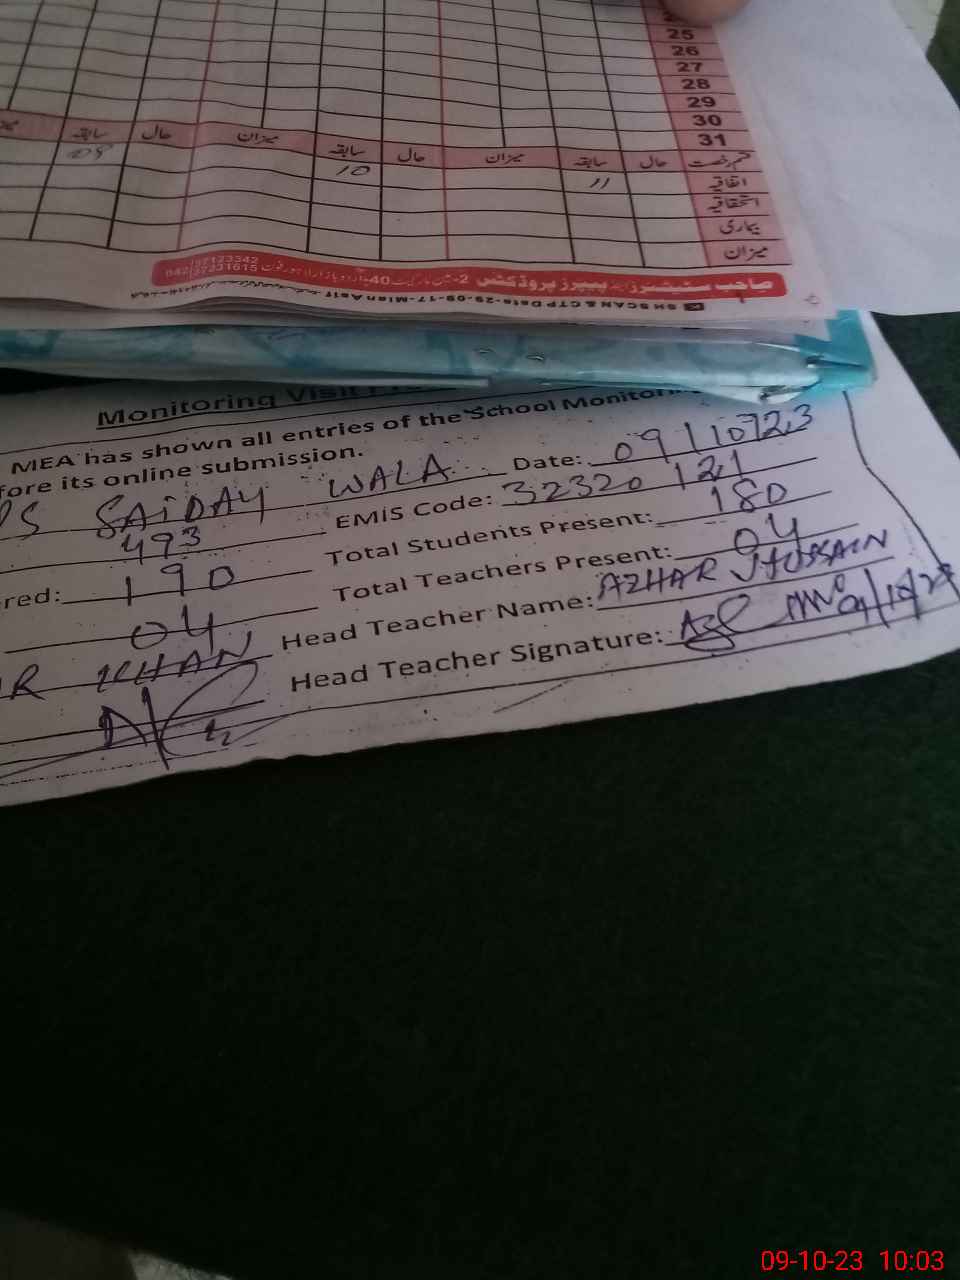 25
26
27
28
29
30
31
سابقہ حال میزان سابقہ حال میزان سابقہ حال قسم رخصت
09 10 11 اتفاقیہ
استحقاقیہ
بیماری
میزان
صاحب سٹیشنرز اینڈ پیپرز پروڈکٹس 2-
042 37123342
37231615
SH SCAN & CTP Date-29-09-17-Mian Asif
Monitoring Visit
MEA has shown all entries of the School Monitor
fore its online submission.
PS SAIDAY WALA Date: 09/10/23
493 EMIS Code: 32320121
red: 190 Total Students Present: 180
04 Total Teachers Present: 04
R KHAN Head Teacher Name: AZHAR HUSSAIN
Head Teacher Signature: 09/10/23
09-10-23 10:03